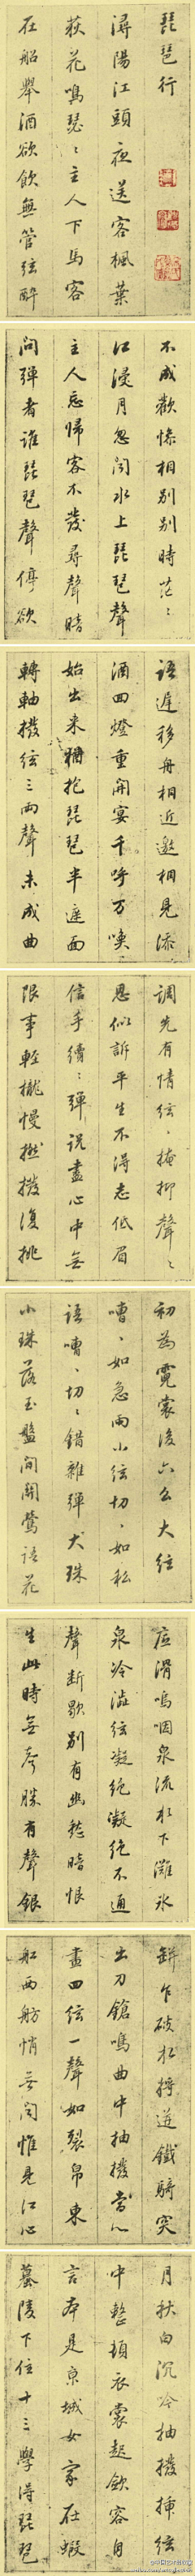 琵琶行
潯陽江頭夜送客楓葉
荻花鳴瑟々主人下馬客
在船舉酒欲飲無管弦醉
不成歡慘相別別時茫々
江浸月忽聞水上琵琶聲
主人忘歸客不發尋聲暗
問彈者誰琵琶聲停欲
語遲移舟相近邀相見添
酒回燈重開宴千呼万喚
始出来猶抱琵琶半遮面
轉軸撥弦三兩聲未成曲
調先有情弦々掩抑聲々
思似訴平生不得志低眉
信手續々彈說盡心中無
限事輕攏慢撚撥復挑
初為霓裳後六么大弦
嘈々如急雨小弦切々如私
語嘈々切々錯雜彈大珠
小珠落玉盤間關鶯語花
底滑嗚咽泉流水下灘水
泉冷澁弦凝絕凝絕不通
聲斷歇別有幽愁暗恨
生此時無聲勝有聲銀
缾乍破水漿迸鐵騎突
出刀鎗鳴曲中抽撥當心
畫四弦一聲如裂帛東
船西舫悄無聞惟見江心
月秋白沉吟抽撥插弦
中整頓衣裳起斂容自
言本是京城女家在蝦
蟇陵下住十三學得琵琶